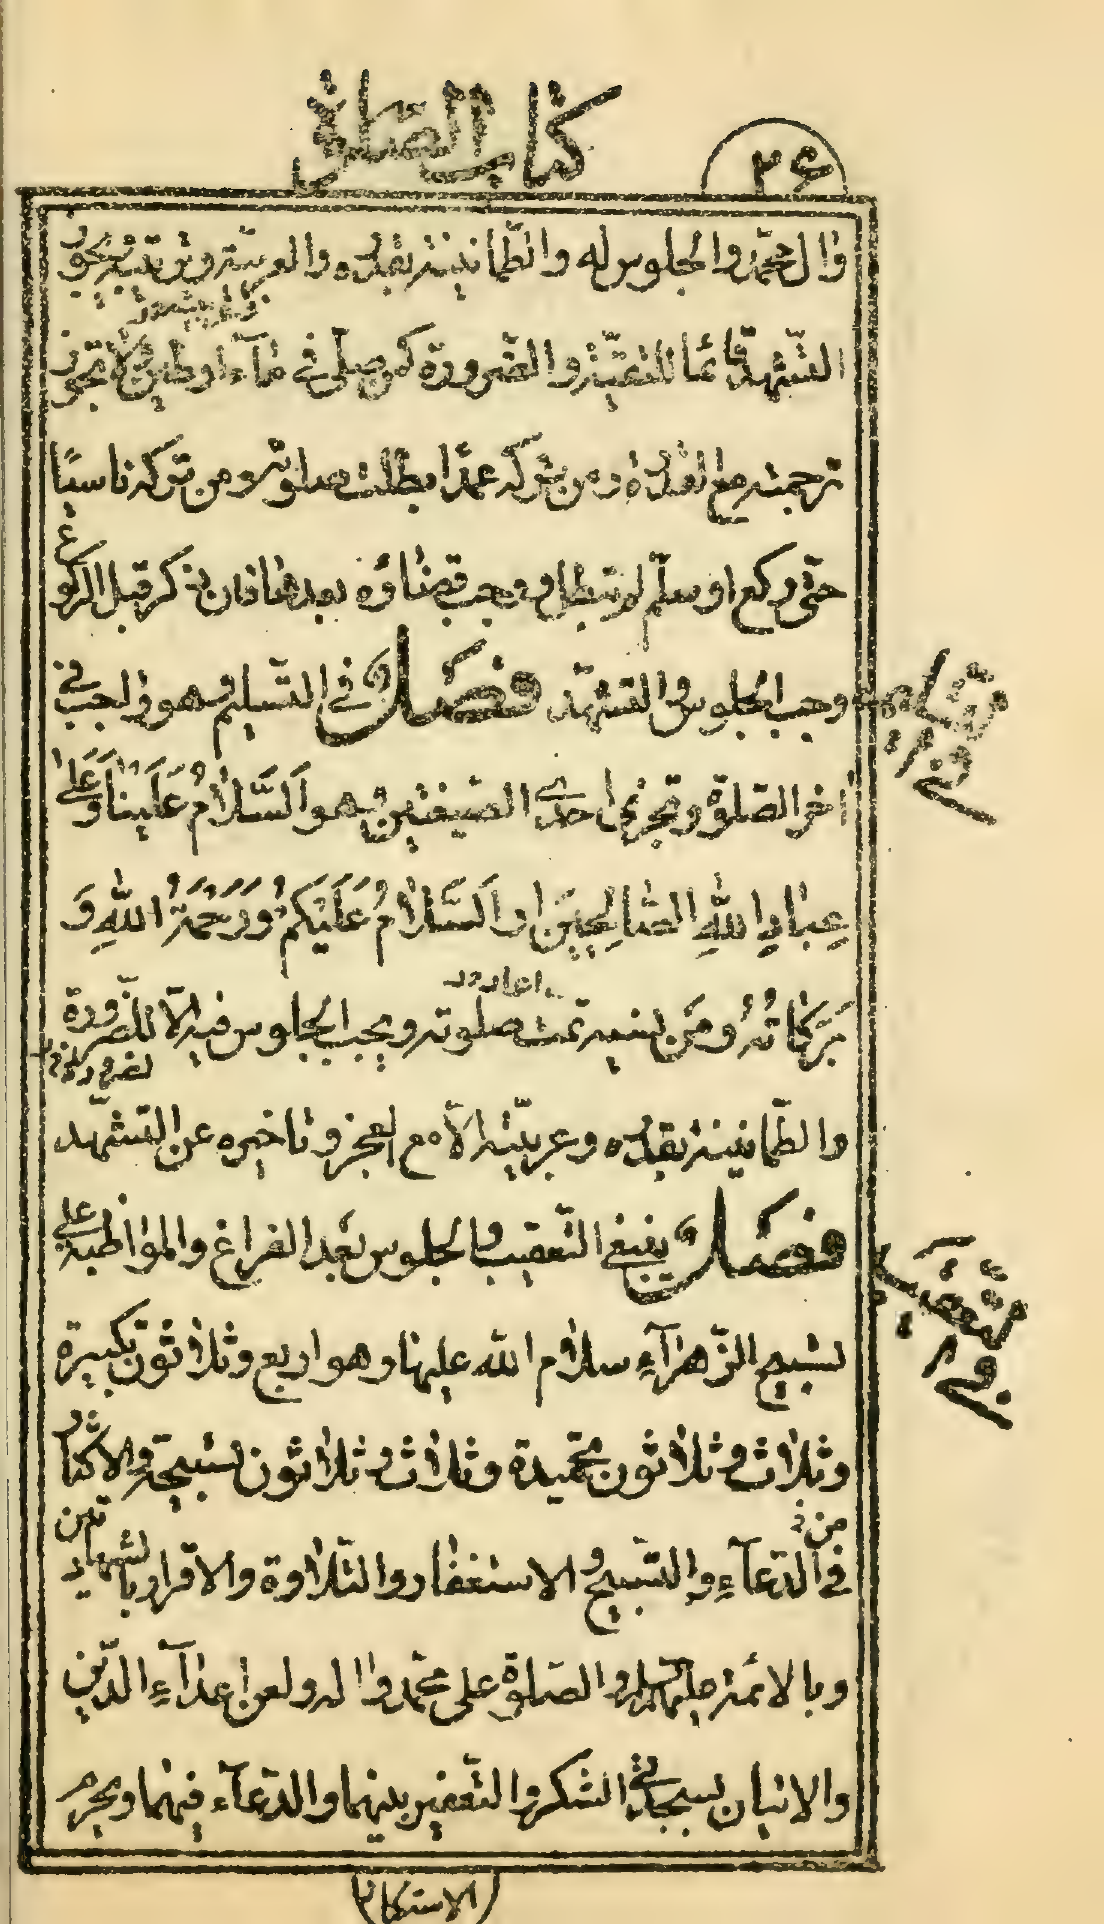 كتاب الصلوة
٢۶
وال محمّد والجلوس له والطّمانينة بقدره والعربيّة وترتيبه يجوز
التّشهد قائما للتقيّة والضّرورة كمن صلى فى ماء او طين ولا تجوز
ترجمته مع القدرة ومن تركه عمدا بطلت صلوته ومن تركه ناسيًا
حتّى ركع او سلّم لم تبطل ويجب قضاؤه بعدها فان ذكر قبل الركوع
وجب الجلوس والتشهّد فصل فى التّسليم وهو واجب فى
اخر الصّلوة ويجزى احدى الصيغتين وهو اَلسَّلاٰمُ عَلَيْنٰا وَعَلىٰ
عِبٰادِ اللهِ الصّٰالِحِينَ او اَلسَّلاٰمُ عَلَيْكُمْ وَرَحْمَةُ اللهِ وَ
بَرَكٰاتُهُ ومَن نسيه تمت صلوته ويجب الجلوس فيه الّا للضّرورة
والطّمانينة بقدره وعربيّته الّا مع العجز وتاخيره عن التشهّد
فصل ينبغى التّعقيب والجلوس بَعْد الفراغ والمواظبة على
تسبيح الزّهرآء سلام الله عليها وهو اربع وثلاثون تكبيرة
وثلاث وثلاثون تحميدة وثلاث وثلاثون تسبيحة والاكثار
من
فى الدّعآء والتسّبيح والاستغفار والتّلاوة والاقرار بالشّهادتين
وبالائمّة عليهم السلام والصّلوة على محمّد واله ولعن اعدآء الدّين
والاتيان بسجدتى الشكر والتّعفير بينهما والدّعآء فيهما ويحرم
فى التّسليم
فى التّعقيب
الاستكبار